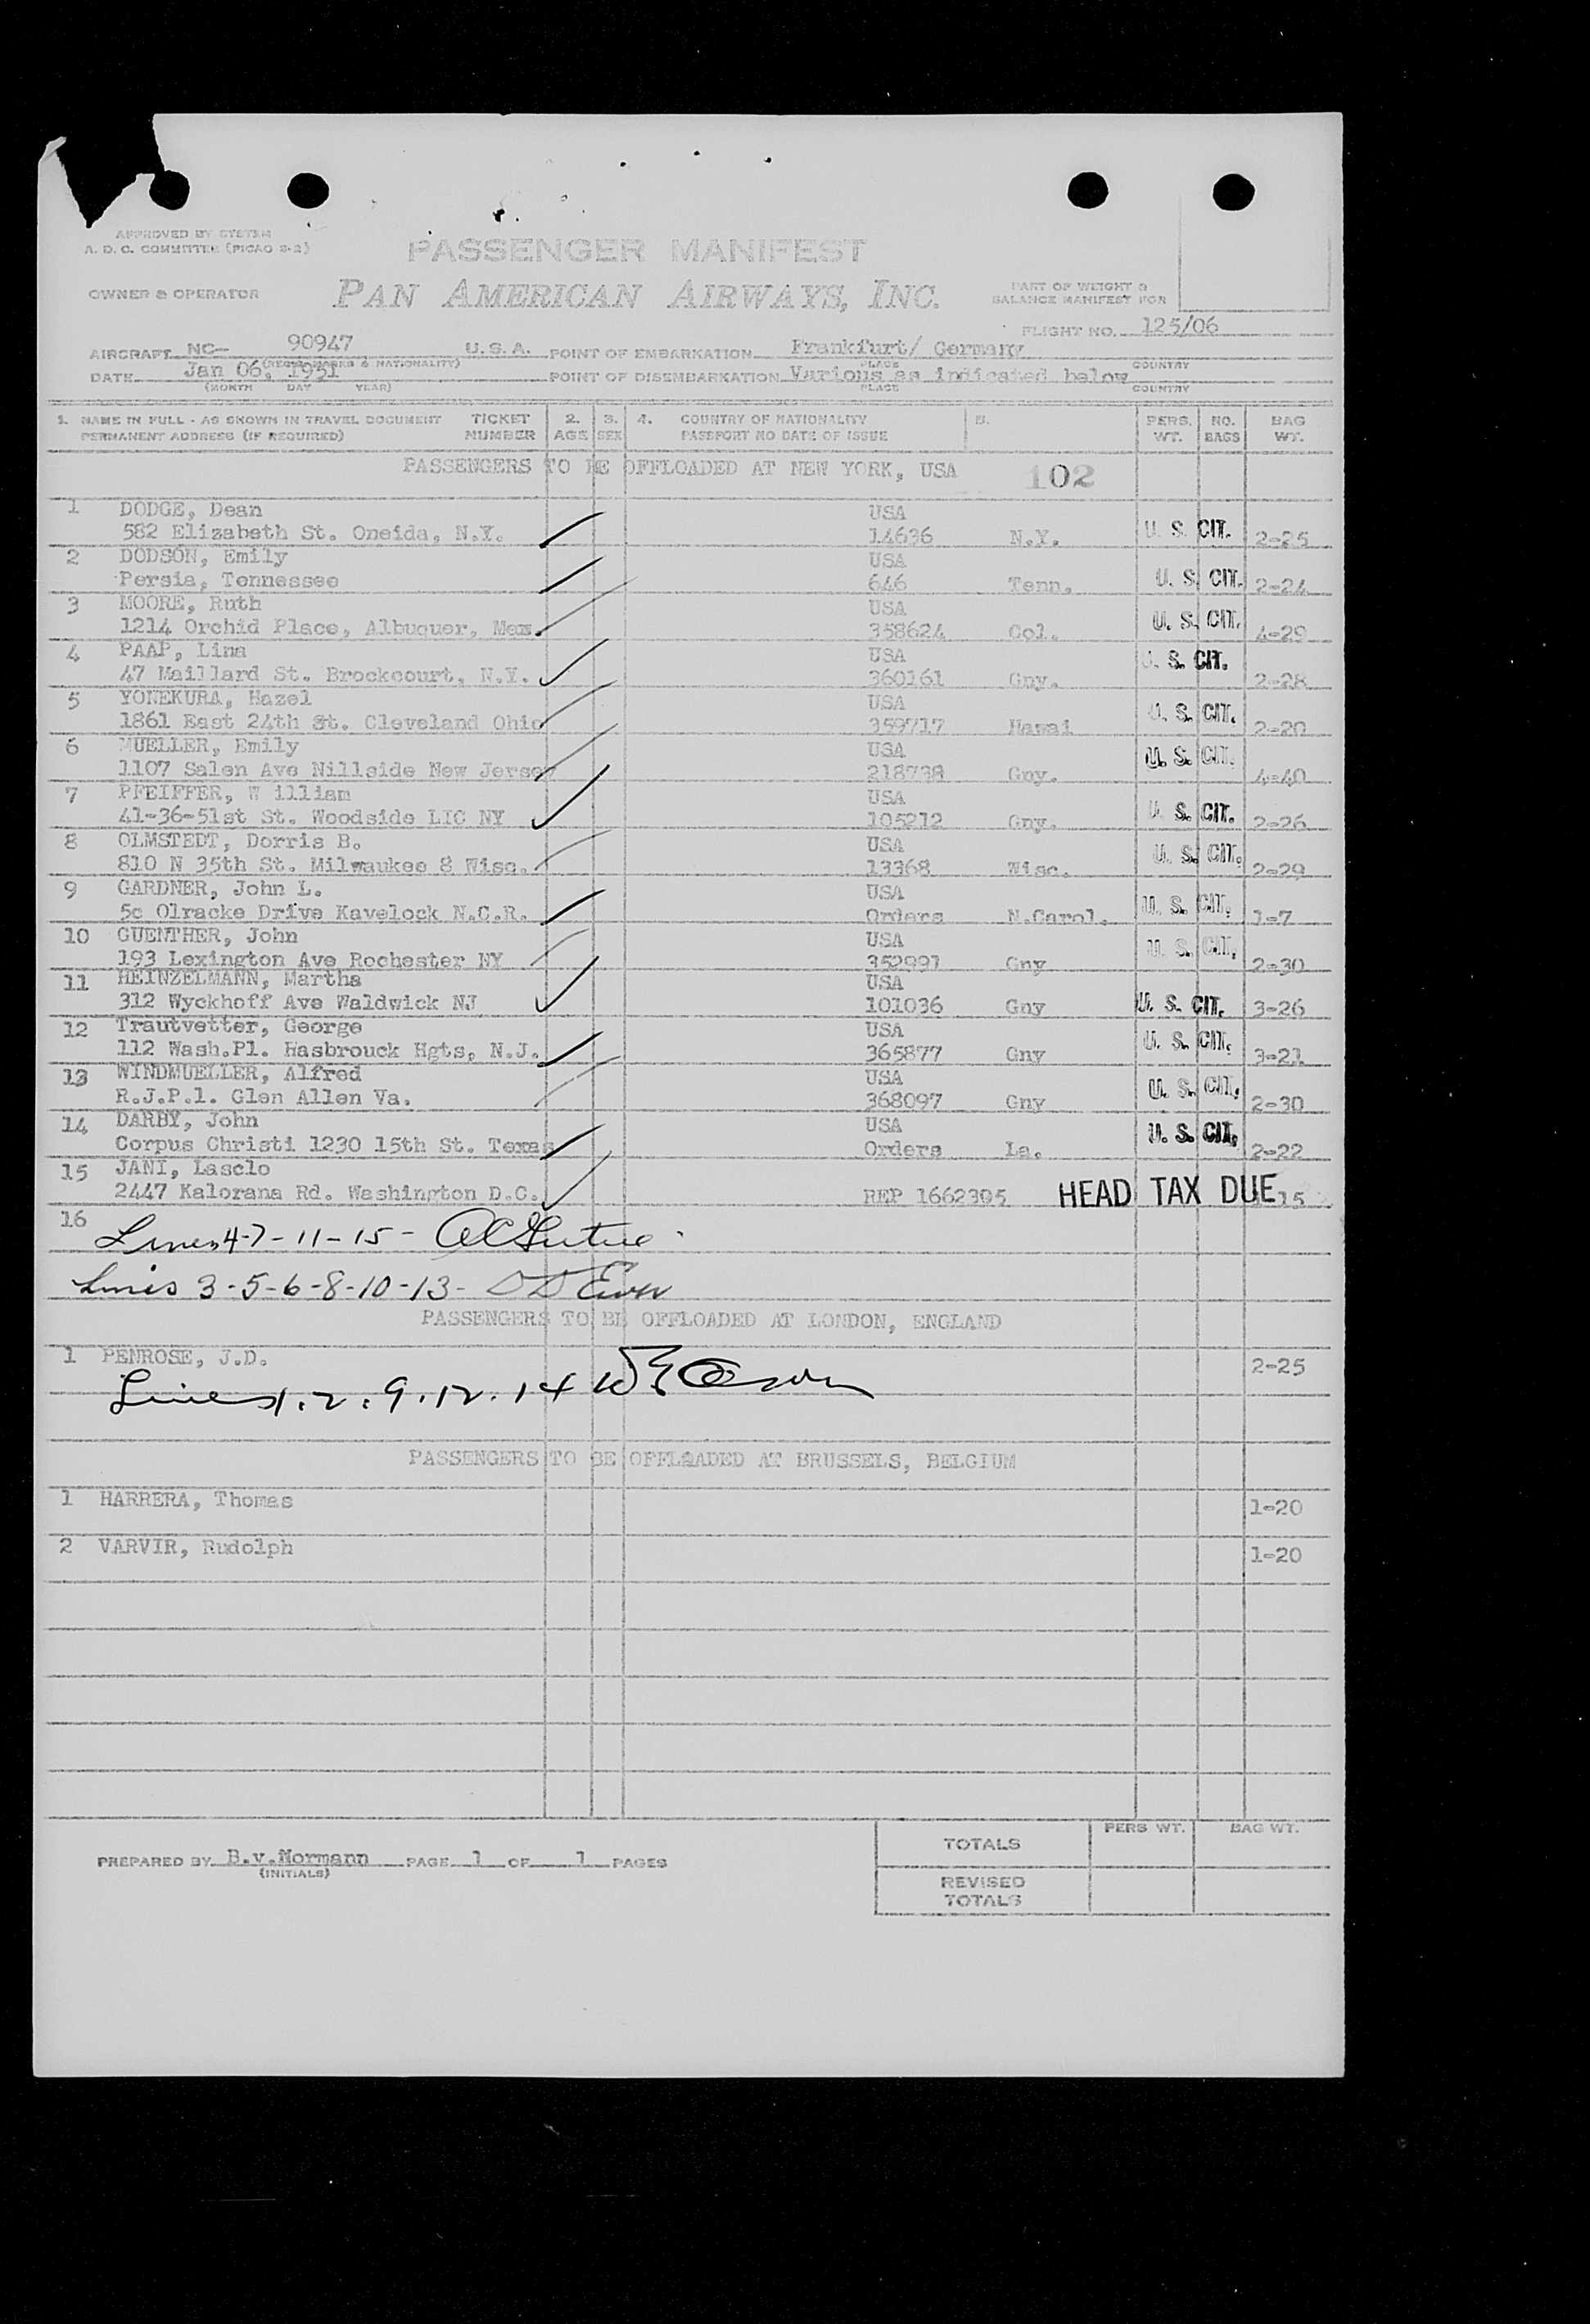 APPROVED BY SYSTEM
A. D. C. COMMITTEE (PICAO 2-2)
PASSENGER MANIFEST
OWNER & OPERATOR PAN AMERICAN AIRWAYS, INC.
PART OF WEIGHT &
BALANCE MANIFEST FOR
FLIGHT NO. 125/06
AIRCRAFT NC- 90947 U.S.A. POINT OF EMBARKATION Frankfurt/ Germany
(REGIS. MARKS & NATIONALITY) PLACE COUNTRY
DATE Jan 06, 1951 POINT OF DISEMBARKATION Various as indicated below
(MONTH DAY YEAR) PLACE COUNTRY
1. NAME IN FULL - AS SHOWN IN TRAVEL DOCUMENT TICKET 2. 3. 4. COUNTRY OF NATIONALITY 5. PERS. NO. BAG
PERMANENT ADDRESS (IF REQUIRED) NUMBER AGE SEX PASSPORT NO DATE OF ISSUE WT. BAGS WT.
PASSENGERS TO BE OFFLOADED AT NEW YORK, USA 102
1 DODGE, Dean USA
582 Elizabeth St. Oneida, N.Y. 14636 N.Y. U. S. CIT. 2-25
2 DODSON, Emily USA
Persia, Tennessee 646 Tenn. U. S. CIT. 2-24
3 MOORE, Ruth USA
1214 Orchid Place, Albuquer, Mex. 358624 Col. U. S. CIT. 4-29
4 PAAP, Lina USA
47 Maillard St. Brockcourt, N.Y. 360161 Gny. U. S. CIT. 2-28
5 YONEKURA, Hazel USA
1861 East 24th St. Cleveland Ohio 359717 Hawai U. S. CIT. 2-20
6 MUELLER, Emily USA
1107 Salen Ave Nillside New Jersey 218738 Gny. U. S. CIT. 4-40
7 PFEIFFER, W illiam USA
41-36-51st St. Woodside LIC NY 105212 Gny. U. S. CIT. 2-26
8 OLMSTEDT, Dorris B. USA
810 N 35th St. Milwaukee 8 Wisc. 13368 Wisc. U. S. CIT. 2-29
9 GARDNER, John L. USA
5c Olracke Drive Kavelock N.C.R. Orders N.Carol. U. S. CIT. 1-7
10 GUENTHER, John USA
193 Lexington Ave Rochester NY 352991 Gny U. S. CIT. 2-30
11 HEINZELMANN, Martha USA
312 Wyckhoff Ave Waldwick NJ 101036 Gny U. S. CIT. 3-26
12 Trautvetter, George USA
112 Wash.Pl. Hasbrouck Hgts, N.J. 365877 Gny U. S. CIT. 3-21
13 WINDMUELLER, Alfred USA
R.J.P.l. Glen Allen Va. 368097 Gny U. S. CIT. 2-30
14 DARBY, John USA
Corpus Christi 1230 15th St. Texas Orders La. U. S. CIT. 2-22
15 JANI, Lasclo
2447 Kalorana Rd. Washington D.C. REP 1662305 HEAD TAX DUE 15
16 Lines 4-7-11-15-
Lines 3-5-6-8-10-13-
PASSENGERS TO BE OFFLOADED AT LONDON, ENGLAND
1 PENROSE, J.D. 2-25
Lines 1.2.9.12.14
PASSENGERS TO BE OFFLOADED AT BRUSSELS, BELGIUM
1 HARRERA, Thomas 1-20
2 VARVIR, Rudolph 1-20
PERS WT. BAG WT.
TOTALS
PREPARED BY B.v.Normann PAGE 1 OF 1 PAGES
(INITIALS)
REVISED
TOTALS